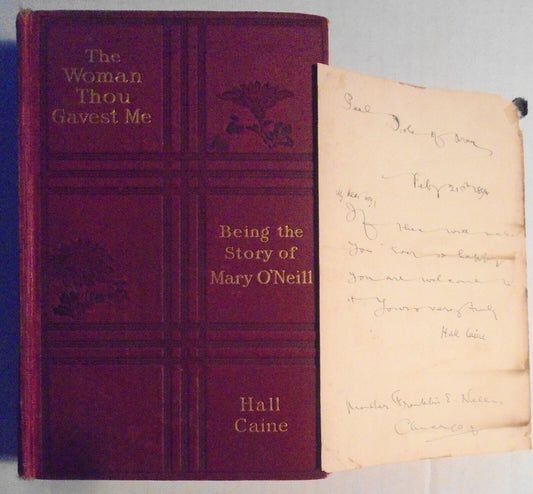 The
Woman
Thou
Gavest Me
Being the
Story of
Mary O'Neill
Hall
Caine
Peel
Isle of Man
Feby 21st 1894
If this will make
you ever so happy
you are welcome to
it Yours very truly
Hall Caine
Master Franklin E.